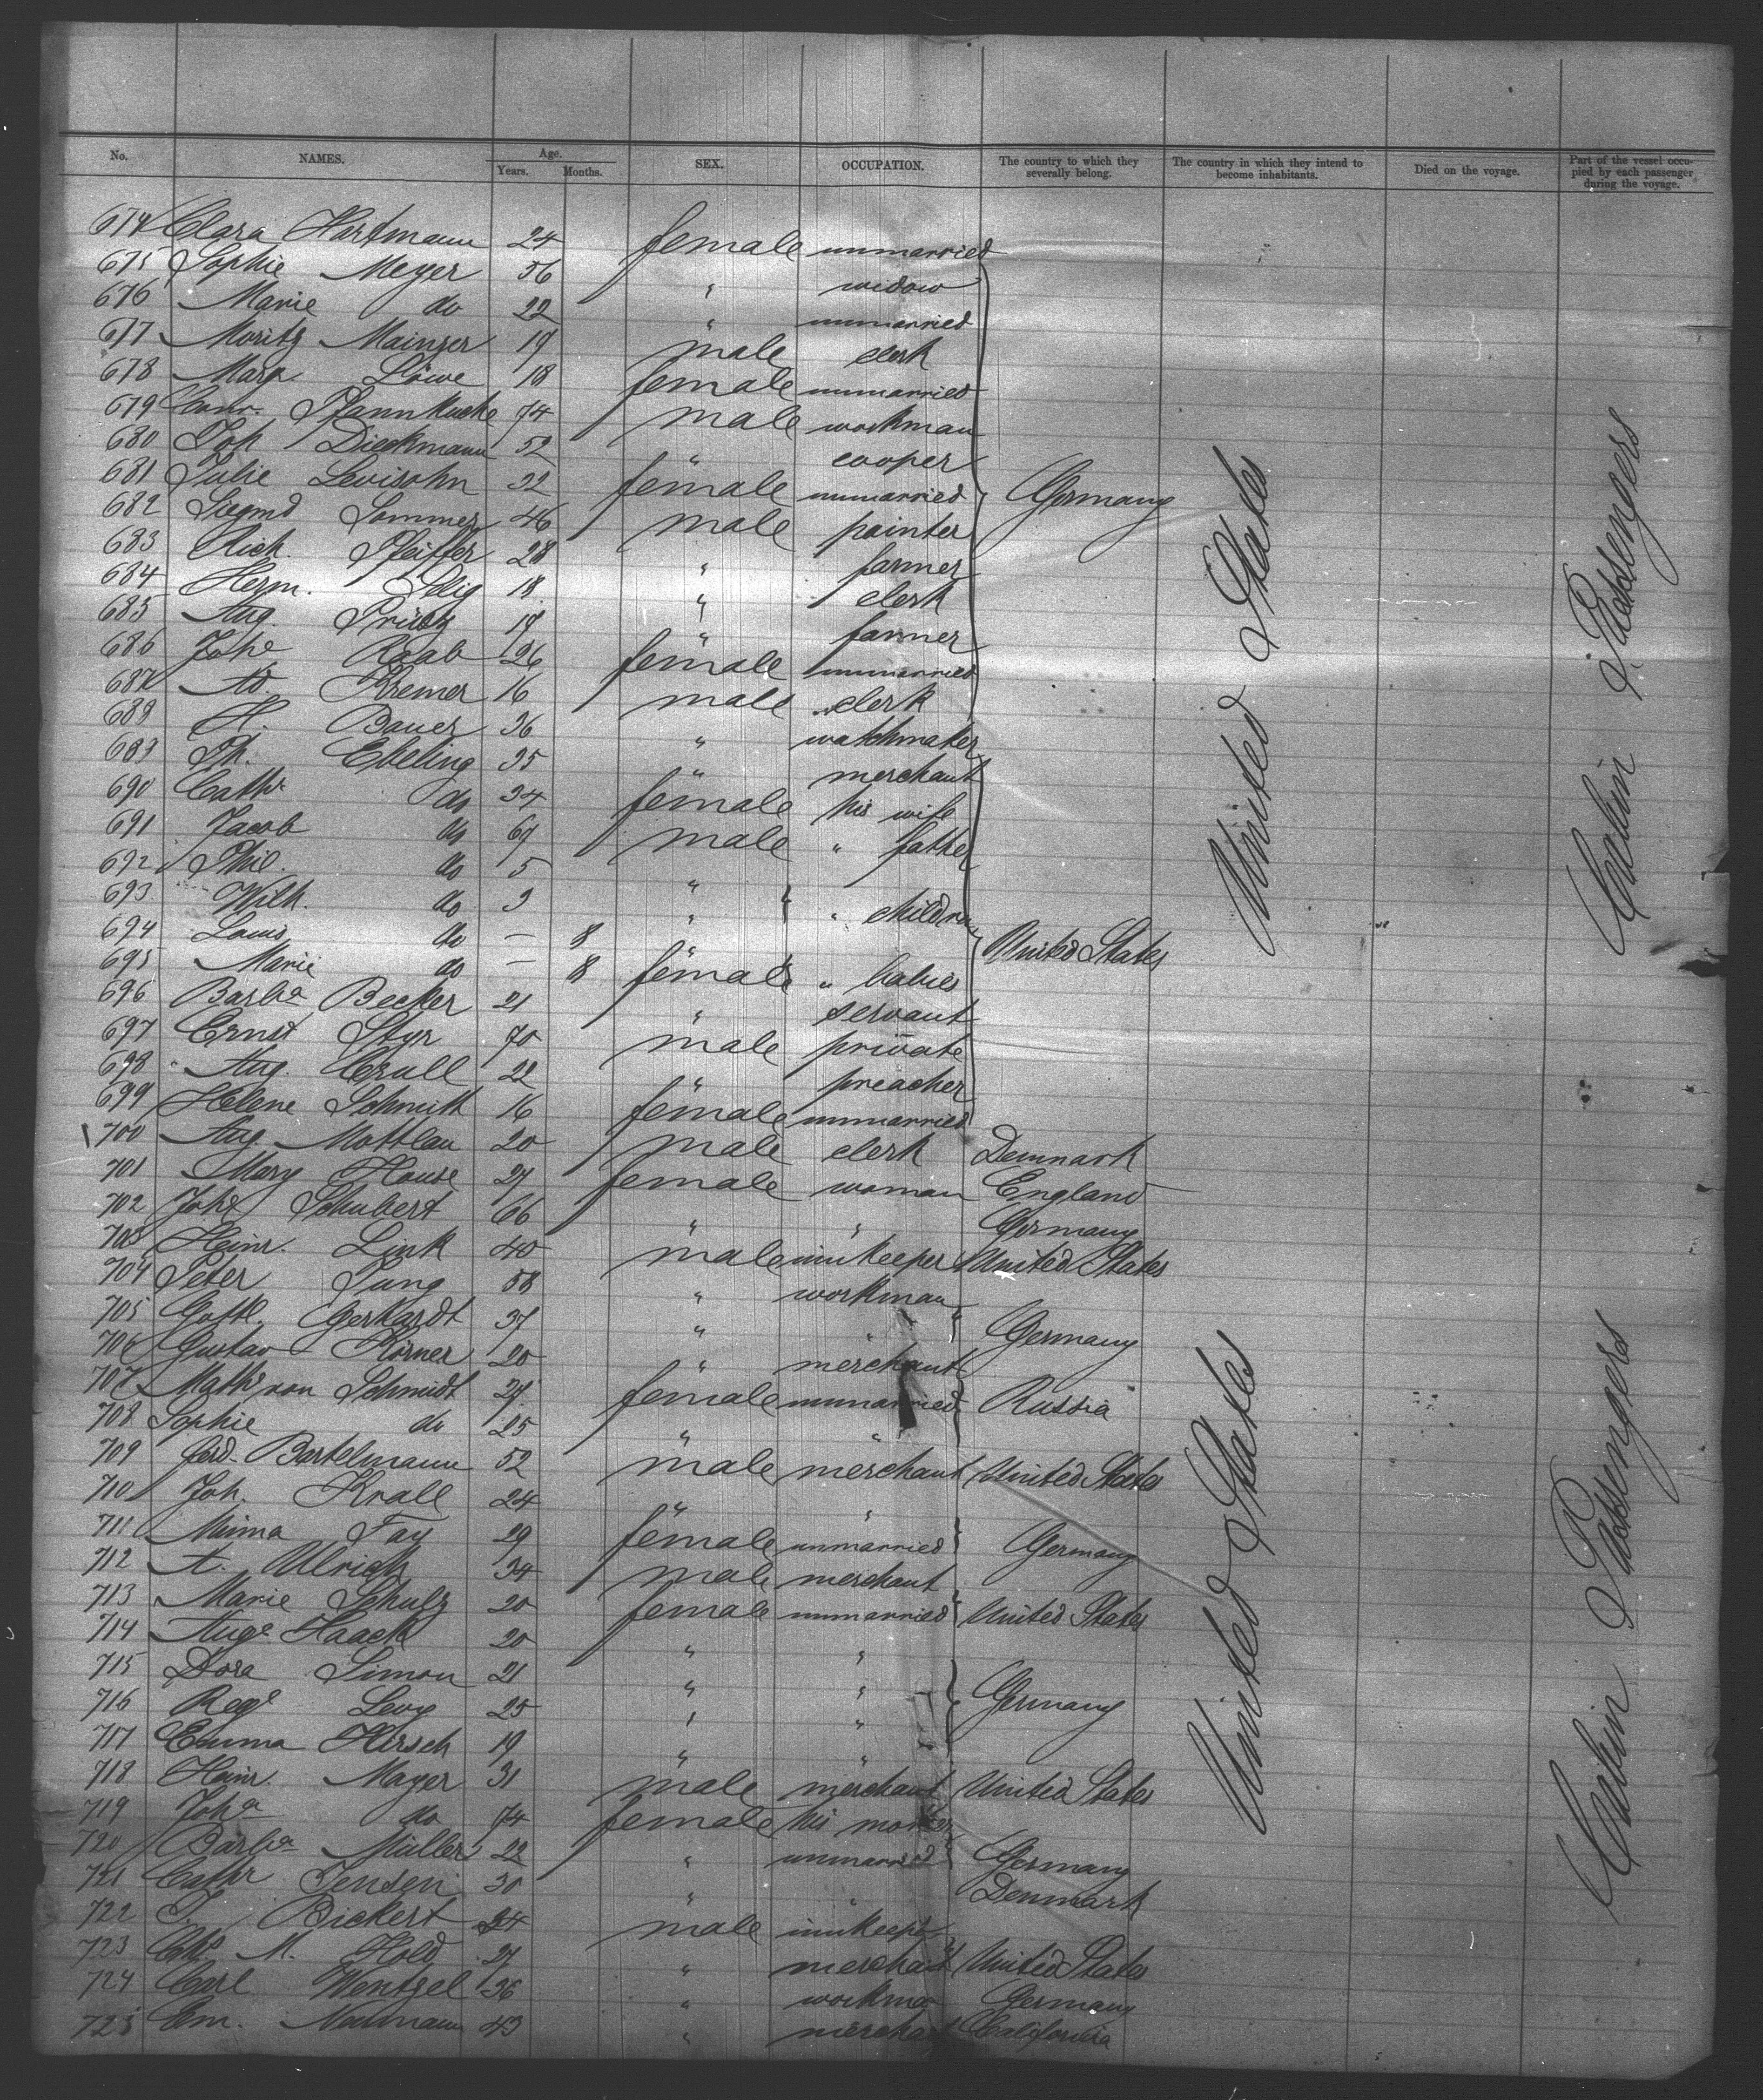 No. NAMES. Age. Years. Months. SEX. OCCUPATION. The country to which they severally belong. The country in which they intend to become inhabitants. Died on the voyage. Part of the vessel occupied by each passenger during the voyage.
674 Clara Hartmann 24 female unmarried
675 Sophie Meyer 56 " widow
676 Marie do 22 " unmarried
677 Moritz Mainzer 19 male clerk
678 Marg. Löwe 18 female unmarried
679 Conr. Pfannkuche 74 male workman
680 Joh Dieckmann 52 " cooper
681 Julie Levisohn 32 female unmarried Germany
682 Siegmd Sommer 46 male painter
683 Rich. Pfeiffer 28 " farmer
684 Herm. Selig 18 " clerk
685 Aug. 19 " farmer
686 Johe Raab 26 female unmarried
687 Ad. Kremer 16 male clerk
688 H. Bauer 36 " watchmaker
689 Ph. Ebeling 35 " merchant
690 Cathe do 34 female his wife
691 Jacob do 67 male " father
692 Phil. do 5 "
693 Wilh. do 3 " " children
694 Louis do — 8 " United States
695 Marie do — 8 female " babies
696 Barba Becker 21 " servant
697 Ernst Styr 70 male private
698 Aug. Crull 22 " preacher
699 Helene Schmitt 16 female unmarried
700 Aug. Mottlau 20 male clerk Denmark
701 Mary House 27 female woman England
702 Johe Schubert 66 " " Germany
703 Heinr. Link 40 male innkeeper United States
704 Peter Jung 58 " workman
705 Gottl. Gerhardt 37 " " Germany
706 Gustav Körner 20 " merchant
707 Mathe von Schmidt 27 female unmarried Russia
708 Sophie do 25 " "
709 Ferd. Bartelmann 52 male merchant United States
710 Joh. Krall 24 " "
711 Minna Fay 29 female unmarried Germany
712 A. Ulrich 34 male merchant
713 Marie Schulz 20 female unmarried United States
714 Auge Haack 20 " "
715 Dora Simon 21 " "
716 Rege Levy 25 " " Germany
717 Emma Hirsch 19 " "
718 Heinr. Mayer 31 male merchant United States
719 Joha do 74 female his mother
720 Barba Müller 22 " unmarried Germany
721 Cathr Jensen 30 " " Denmark
722 J. Bickert 24 male innkeeper
723 Chr. M. Hold 27 " merchant United States
724 Carl Wentzel 36 " workman Germany
725 Em. Naumann 43 " merchant California
United States
Cabin Passengers
United States
Cabin Passengers